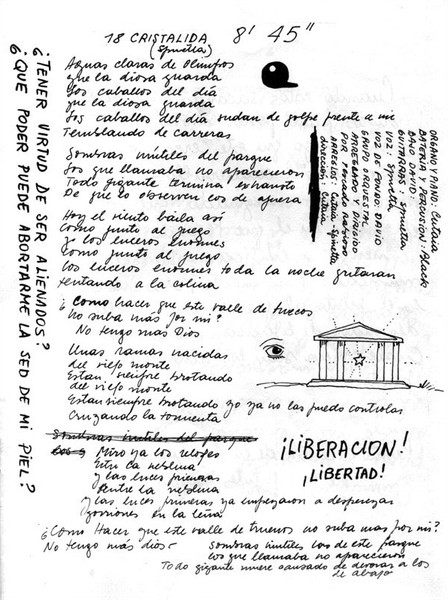 18 CRISTALIDA 8' 45"
(Spinetta)
Aguas claras de Olimpos
que la diosa guarda
Los caballos del día
que la diosa guarda
Los caballos del día sudan de golpe frente a mi
Temblando de carreras
Sombras inútiles del parque
Los que llamaba no aparecieron
Todo gigante termina exhausto
De que lo observen los de afuera
Hoy el viento baila así
Como junto al fuego
Ya los luceros enormes
Como junto al fuego
Los luceros enormes toda la noche gritaran
tentando a la colina
¿Como hacer que este valle de huecos
No suba mas por mi?
No tengo mas Dios
Unas ramas nacidas
del viejo monte
Estan siempre brotando
del viejo monte
Estan siempre brotando yo ya no las puedo controlar
Cruzando la tormenta
Sombras inútiles del parque
Miro ya los relojes
Entre la neblina
Y las luces primeras
Entre la neblina
Y las luces primeras ya empezaron a desperezar
gorriones en la leña
¡LIBERACION!
¡LIBERTAD!
¿Como Hacer que este valle de truenos no suba mas por mi?
No tengo más dios-
sombras inútiles las de este parque
los que llamaba no aparecieron
Todo gigante muere cansado de devorar a los
de abajo
¿TENER VIRTUD DE SER ALIENADOS?
¿QUE PODER PUEDE ABORTARME LA SED DE MI PIEL?
ORGANO Y PIANO: Cutaia
BATERIA Y PERCUSION: Black
BAJO: DAVID
GUITARRAS: Spinetta
VOZ: Spinetta
VOZ DE FONDO: DAVID
GRUPO ORQUESTAL
ARREGLADO Y DIRIGIDO
POR
ARREGLOS: Cutaia-Spinetta
dirección: Cutaia